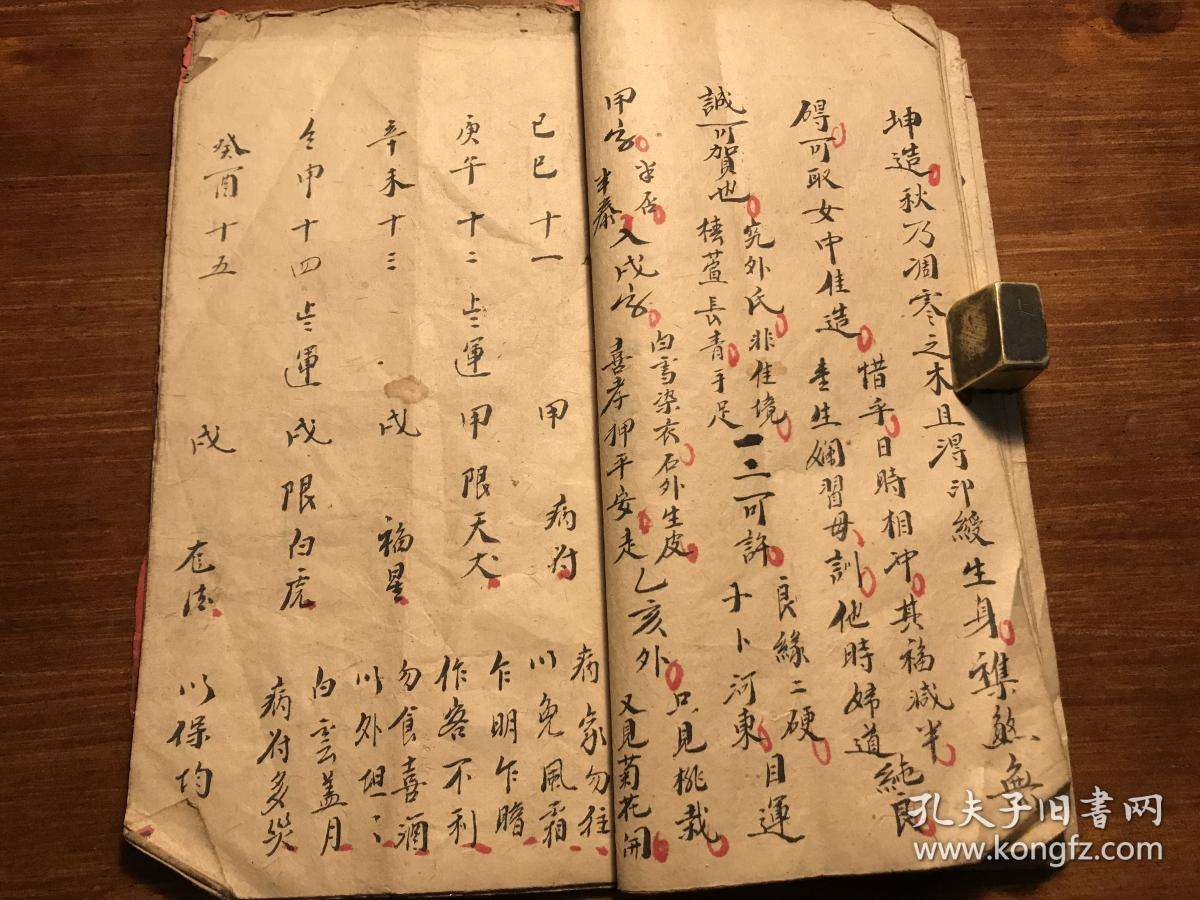 坤造秋乃凋零之木且淂印綬生身襍煞無
碍可取女中佳造惜乎日時相冲其福減半
生嫻習母訓他時婦道純良
誠可賀也究外氏非佳境良緣二硬目運
椿萱長青手足一二可許卜河東
甲字半否半泰入戊字白雪染衣石外生皮
喜孝押平安走乙亥外只見桃栽又見菊花開
己巳十一 甲 病符 病家勿往以免風霜
庚午十二上運甲限天犬 乍明乍暗作客不利
辛未十三 戊 福星 勿食喜酒以外坦:
壬申十四上運戊限白虎 白雲盖月病符多災
癸酉十五 戊 以保均
孔夫子旧书网
www.kongfz.com